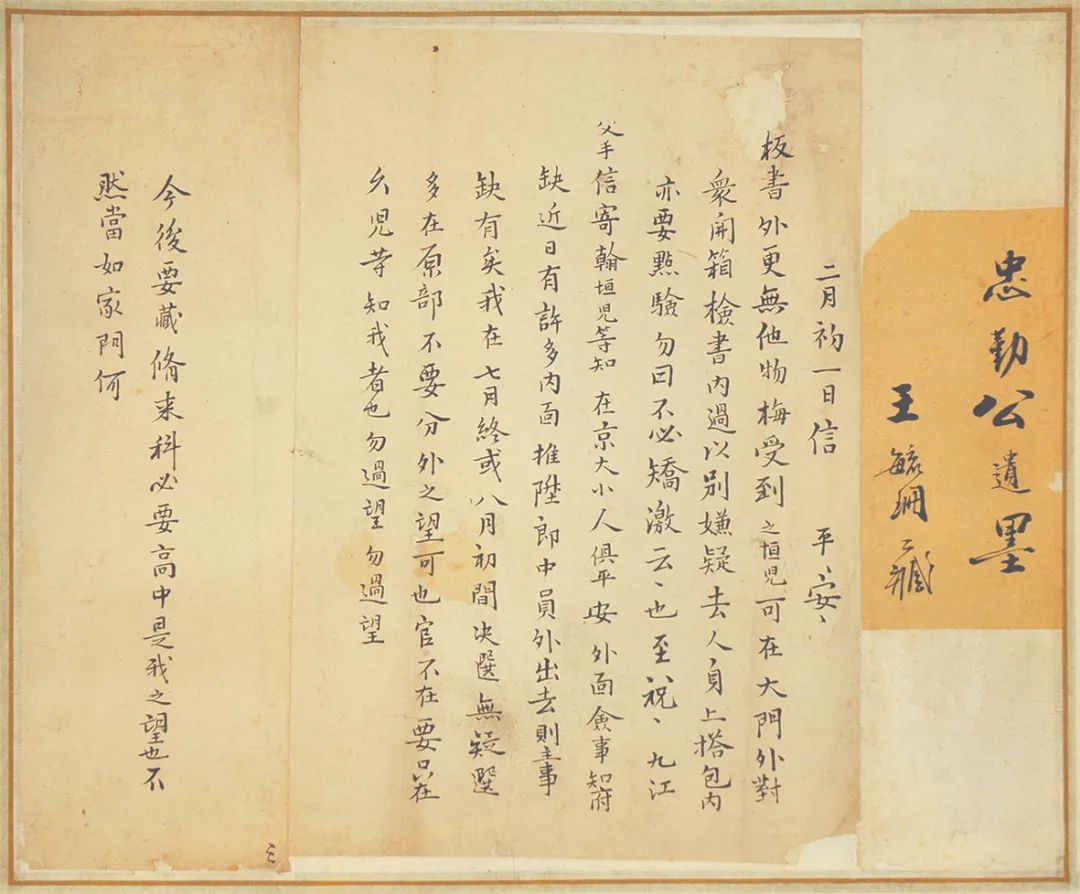 忠勤公遺墨
王毓珊藏
二月初一日信 平、安、
板書外更無他物梅受到之垣児可在大門外對
衆開箱檢書内過以别嫌疑去人身上搭包内
亦要點驗勿曰不必矯激云、也至祝、九江
父手信寄翰垣児等知 在京大小人俱平安 外面僉事知府
缺近日有許多内面推陞郎中員外出去則主事
缺有矣我在七月終或八月初間决選無疑選
多在原部不要分外之望可也官不在要只在
児等知我者也勿過望勿過望
今後要藏脩来科必要高中是我之望也不
然當如家門何
三